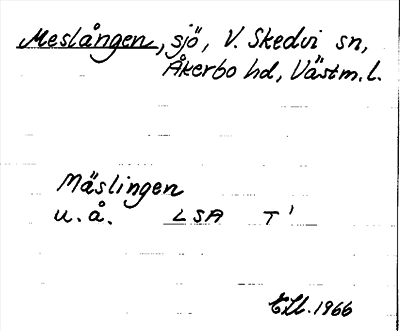 Meslången, sjö, V. Skedvi sn,
Åkerbo hd, Västm. l.
Mäslingen
u. å. LSA T'
1966